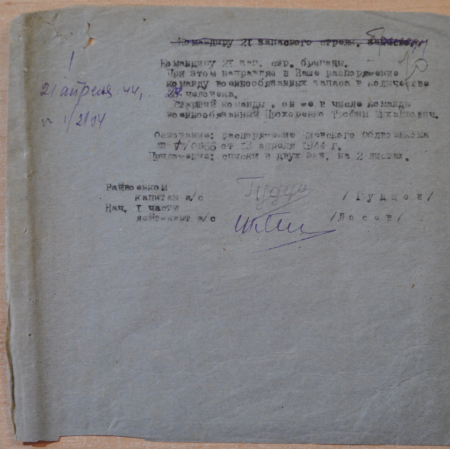 Командиру 21 запасного стрелк.
Командиру 21 зап. стр. бригады.
При этом направляю в Ваше распоряжение
команду военнообязанных запаса в количестве
человека.
21 апреля 44
Старший команды, он же в числе команды
военнообязанный Прохоренко Трофим Михайлович.
Основание: распоряжение облвоенкомата
от 13 апреля 1944 г.
Приложение: списки в двух экз. на 2 листах.
Райвоенком
капитан а/с
/Гудков/
Нач. 1 части
лейтенант а/с
/Лосев/